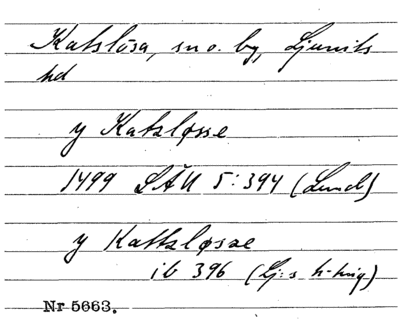 Katslösa, sn o. by, Ljunits
hd
y Katzløsse
1499 LÄU 5:394 (Lund)
y Kattzløsse
ib 396 (Lj:s h-ting)
Nr 5663.